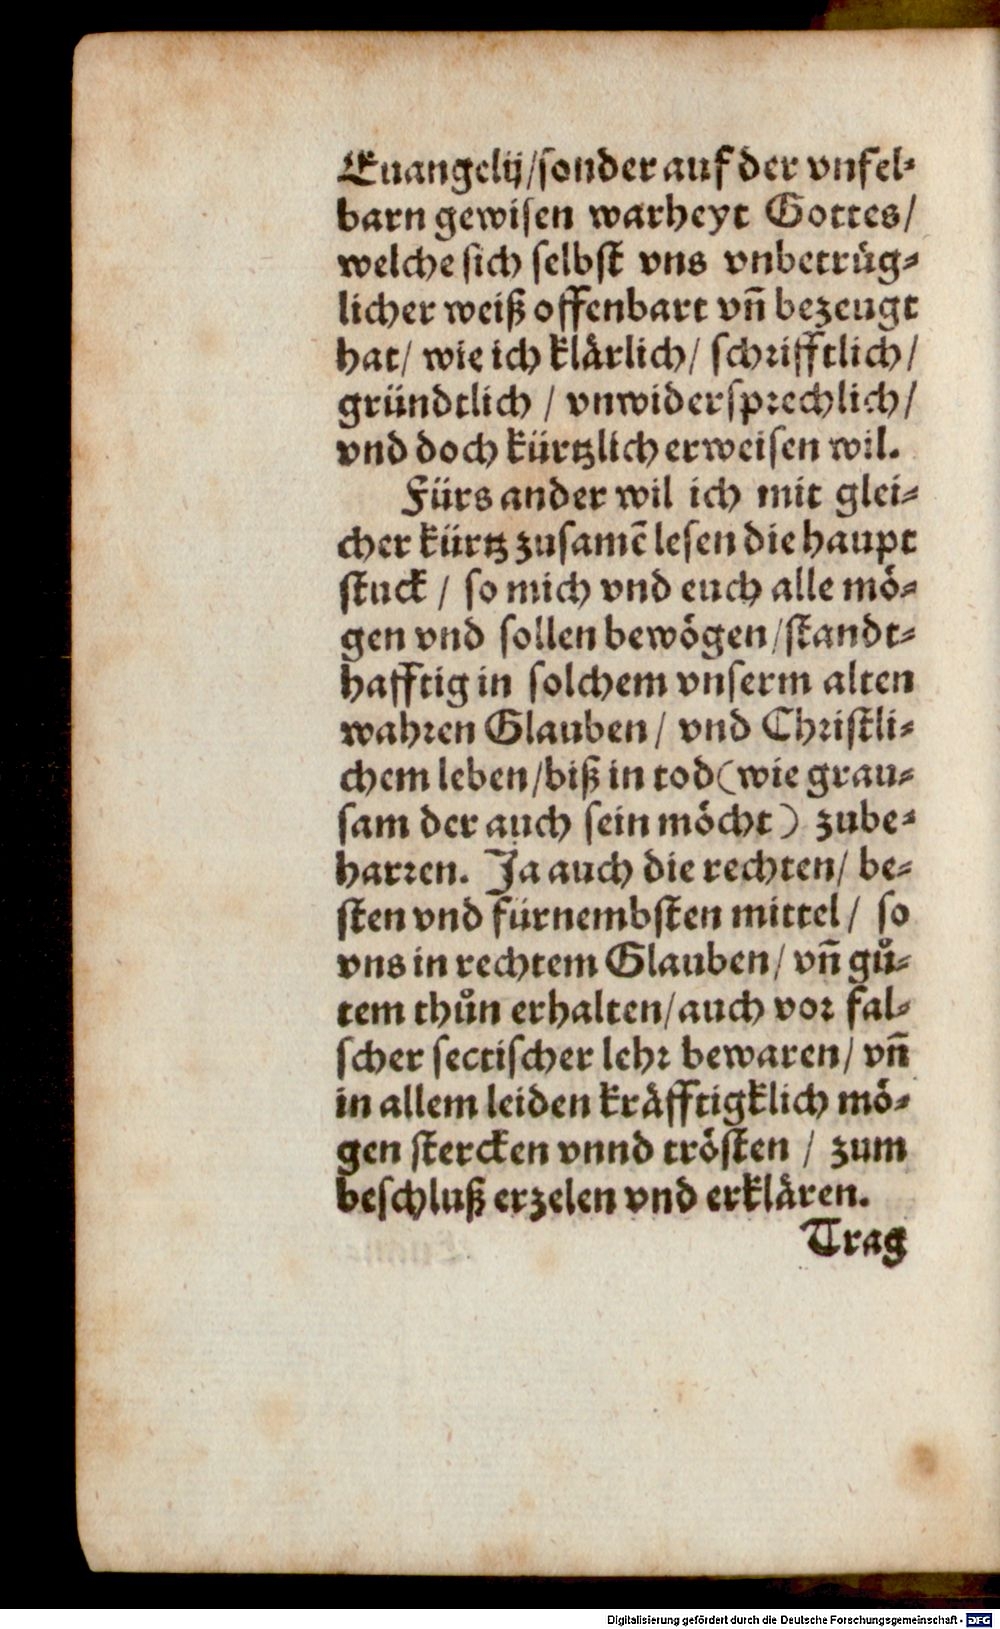 Euangelij/sonder auf der vnfel-
barn gewisen warheyt Gottes/
welche sich selbst vns vnbetrüg-
licher weiß offenbart vñ bezeugt
hat/ wie ich klärlich/ schrifftlich/
gründtlich / vnwidersprechlich/
vnd doch kürtzlich erweisen wil.
Fürs ander wil ich mit glei-
cher kürtz zusamē lesen die haupt
stuck / so mich vnd euch alle mö-
gen vnd sollen bewögen/standt-
hafftig in solchem vnserm alten
wahren Glauben/ vnd Christli-
chem leben/biß in tod (wie grau-
sam der auch sein möcht) zube-
harren. Ja auch die rechten/ be-
sten vnd fürnembsten mittel/ so
vns in rechtem Glauben/ vñ gů-
tem thůn erhalten/auch vor fal-
scher sectischer lehr bewaren/ vñ
in allem leiden kräfftigklich mö-
gen stercken vnnd trösten / zum
beschluß erzelen vnd erklären.
Trag
Digitalisierung gefördert durch die Deutsche Forschungsgemeinschaft - DFG